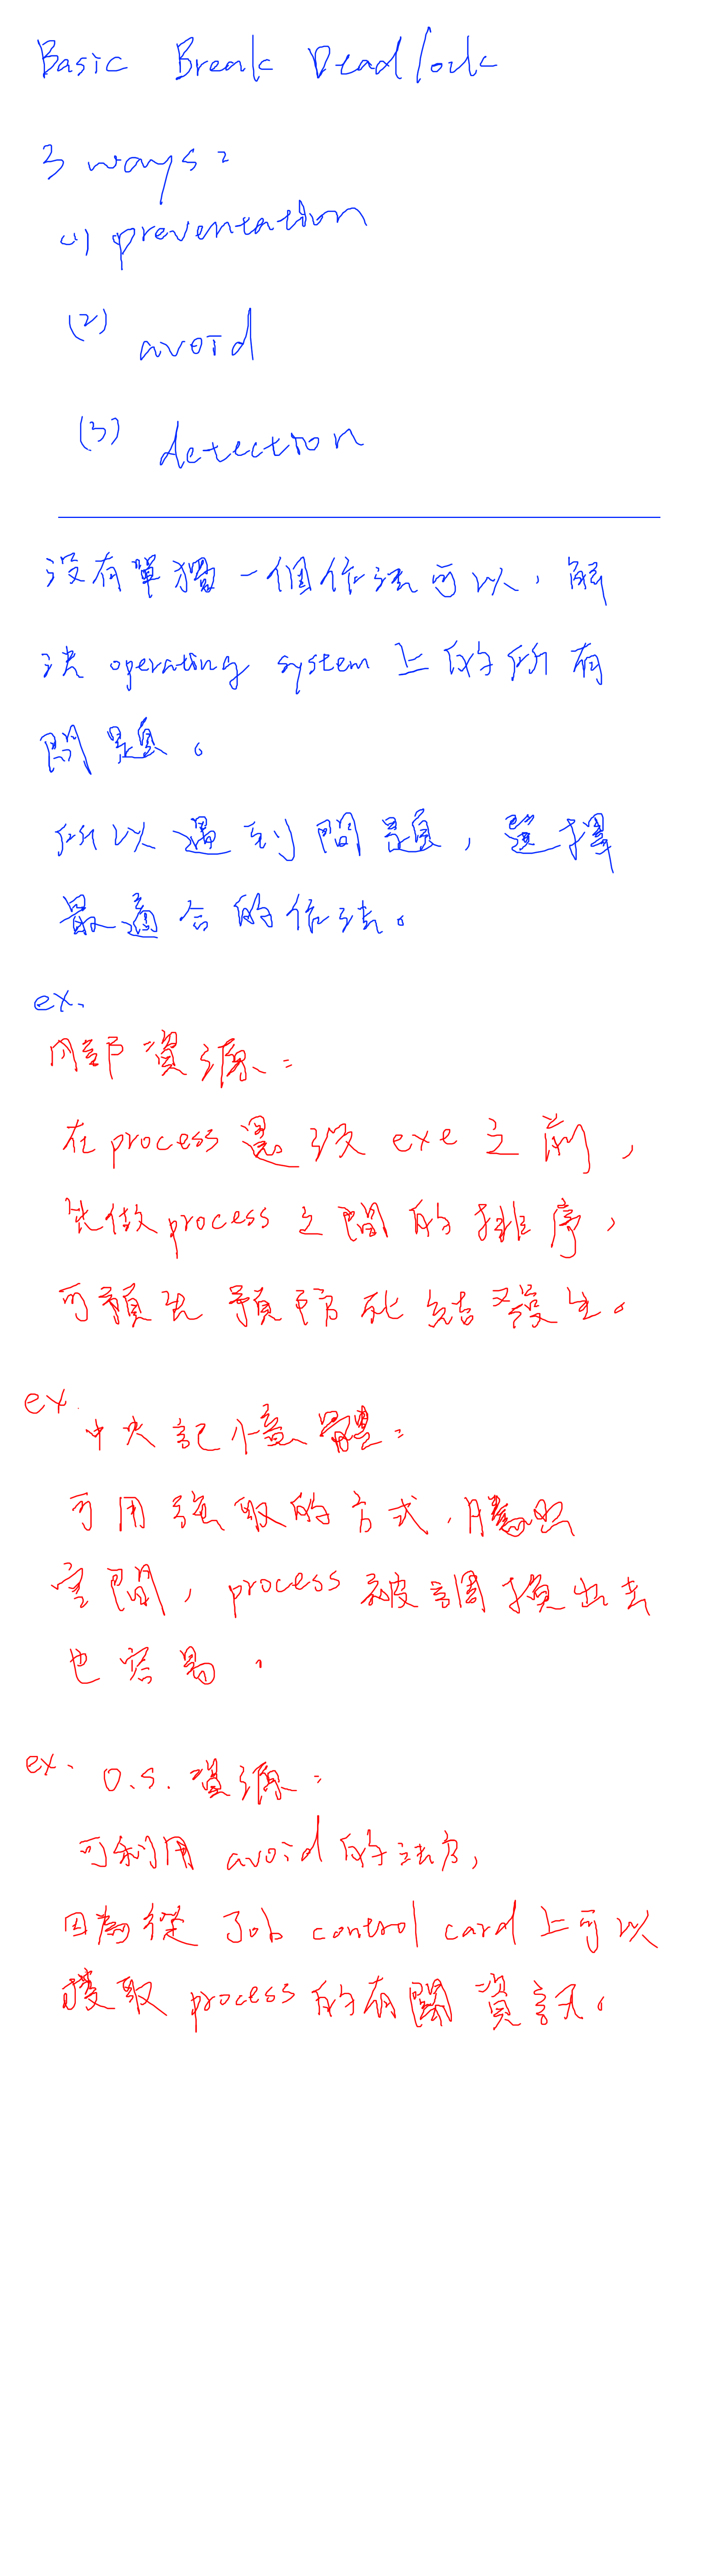 Basic Break Deadlock
3 ways:
(1) preventation
(2) avoid
(3) detection
沒有單獨一個作法可以,解
決 operating system 上的所有
問題。
所以遇到問題,選擇
最適合的作法。
ex.
內部資源:
在process還沒 exe 之前,
先做process之間的排序,
可預先預防死結發生。
ex.
中央記憶體:
可用強取的方式,騰出
空間,process被調換出去
也容易。
ex. O.S.資源:
可利用 avoid的法方,
因為從 Job control card上可以
獲取process的有關資訊。